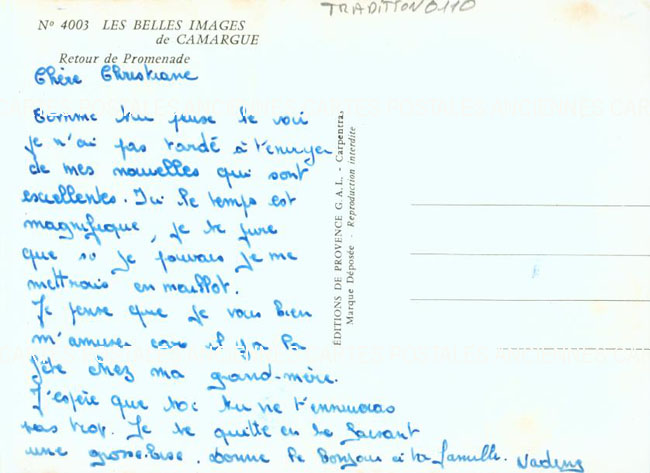 TRADITION 0110
Nº 4003 LES BELLES IMAGES
de CAMARGUE
Retour de Promenade
Chère Christiane
Comme tu peux le voi
je n'ai pas tardé à t'envoyer
de mes nouvelles qui sont
excellentes. Ici le temps est
magnifique, je te jure
que si je pouvais je me
mettrais en maillot.
Je pense que je vais bien
m'amuser car il y a la
fête chez ma grand-mère.
J'espère que toi tu ne t'ennuieras
pas trop. Je te quitte en te faisant
une grosse bise. donne le bonjour à ta famille.
ÉDITIONS DE PROVENCE G.A.L. - Carpentras
Marque Déposée - Reproduction interdite
CARTES POSTALES ANCIENNES